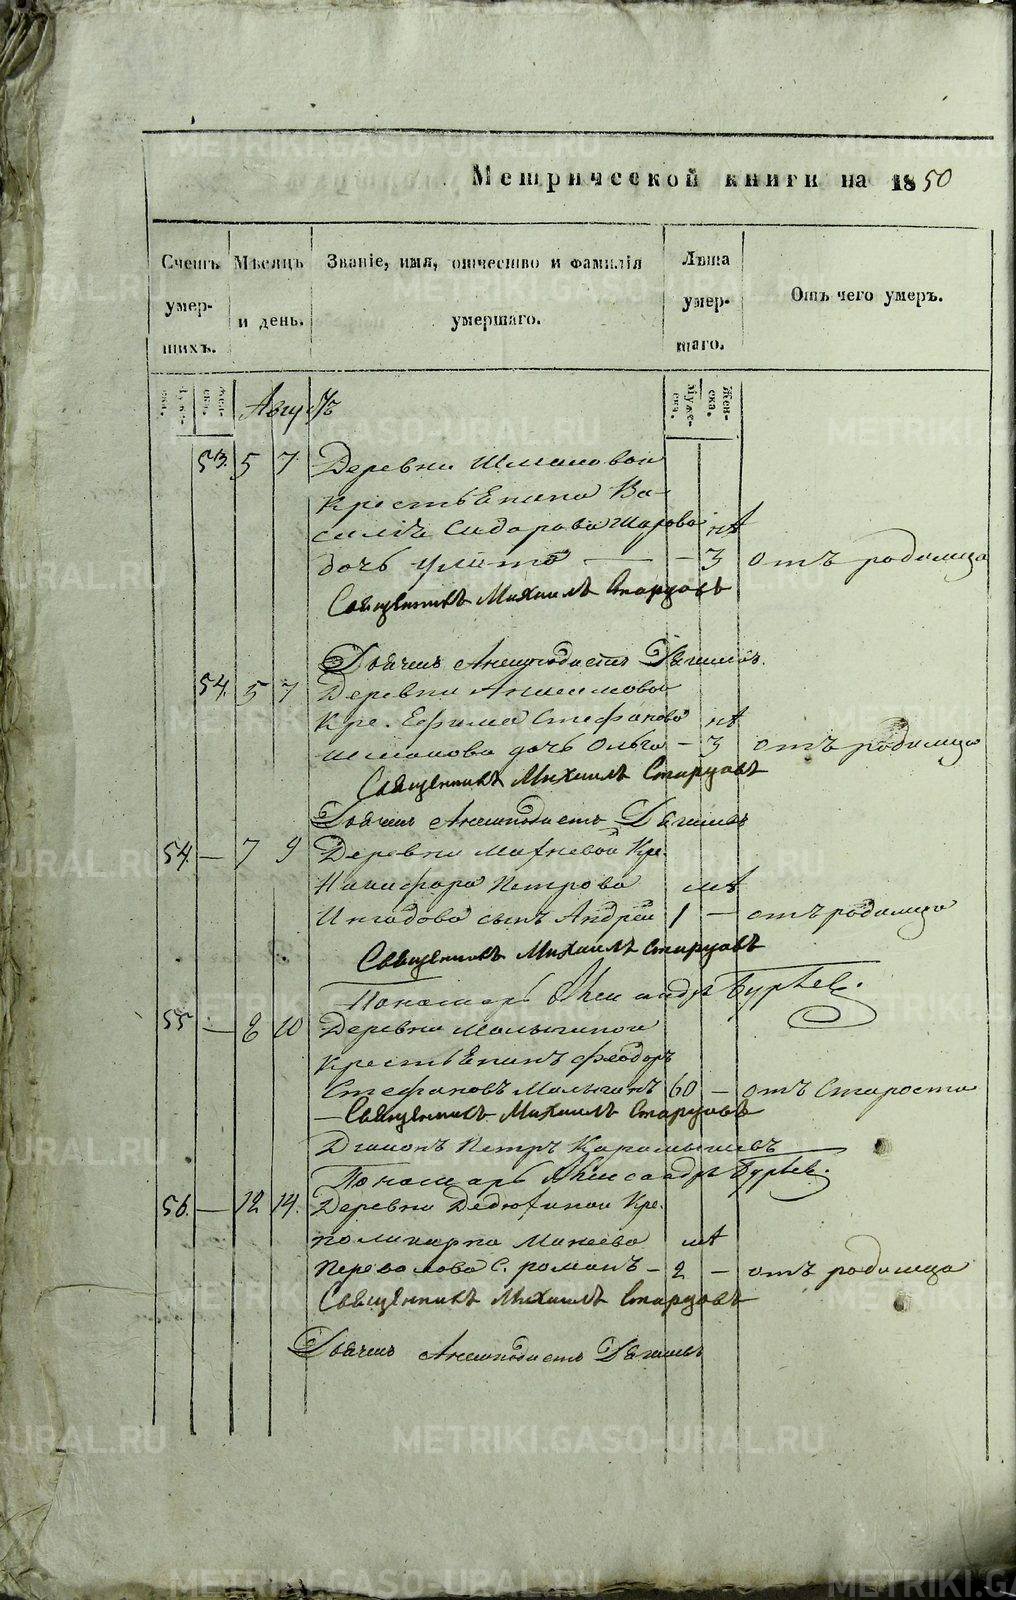 Метрической книги на 1850
Счетъ умерших. Мѣсяцъ и день. Званіе, имя, отчество и фамилія умершаго. Лѣта умершаго. Отъ чего умеръ.
Муже- ска. Жен- ска.
Августъ
53. 5 7 Деревни Шмаковой
крестьянина Ва-
силья Сидорова Шарова нѣ
дочь Улита — 3 отъ родимца
Священникъ Михаилъ Старцовъ
Дьячекъ Анемподистъ
54. 5 7 Деревни Анисимовой
Кре. Ефима Стефанова нѣ
дочь Ольга – 3 отъ родимца
Священникъ Михаилъ Старцовъ
Дьячекъ Анемподистъ
54. — 7 9 Деревни Махневой Кре.
Никифора Петрова мѣ
сынъ Андрей 1 – отъ родимца
Священникъ Михаилъ Старцовъ
Пономарь Александръ Гурьев.
55 — 8 10 Деревни Малыгиной
крестьянинъ Феодоръ
Стефановъ Малыгинъ 60 – отъ Старости
– Священникъ Михаилъ Старцовъ
Диаконъ Петръ Карамышевъ
Пономарь Александръ Гурьев.
56. — 12 14. Деревни Дедюхиной Кре.
Поликарпа Макеева мѣ
с. романъ – 2 – отъ родимца
Священникъ Михаилъ Старцовъ
Дьячекъ Анемподистъ
METRIKI.GASO-URAL.RU